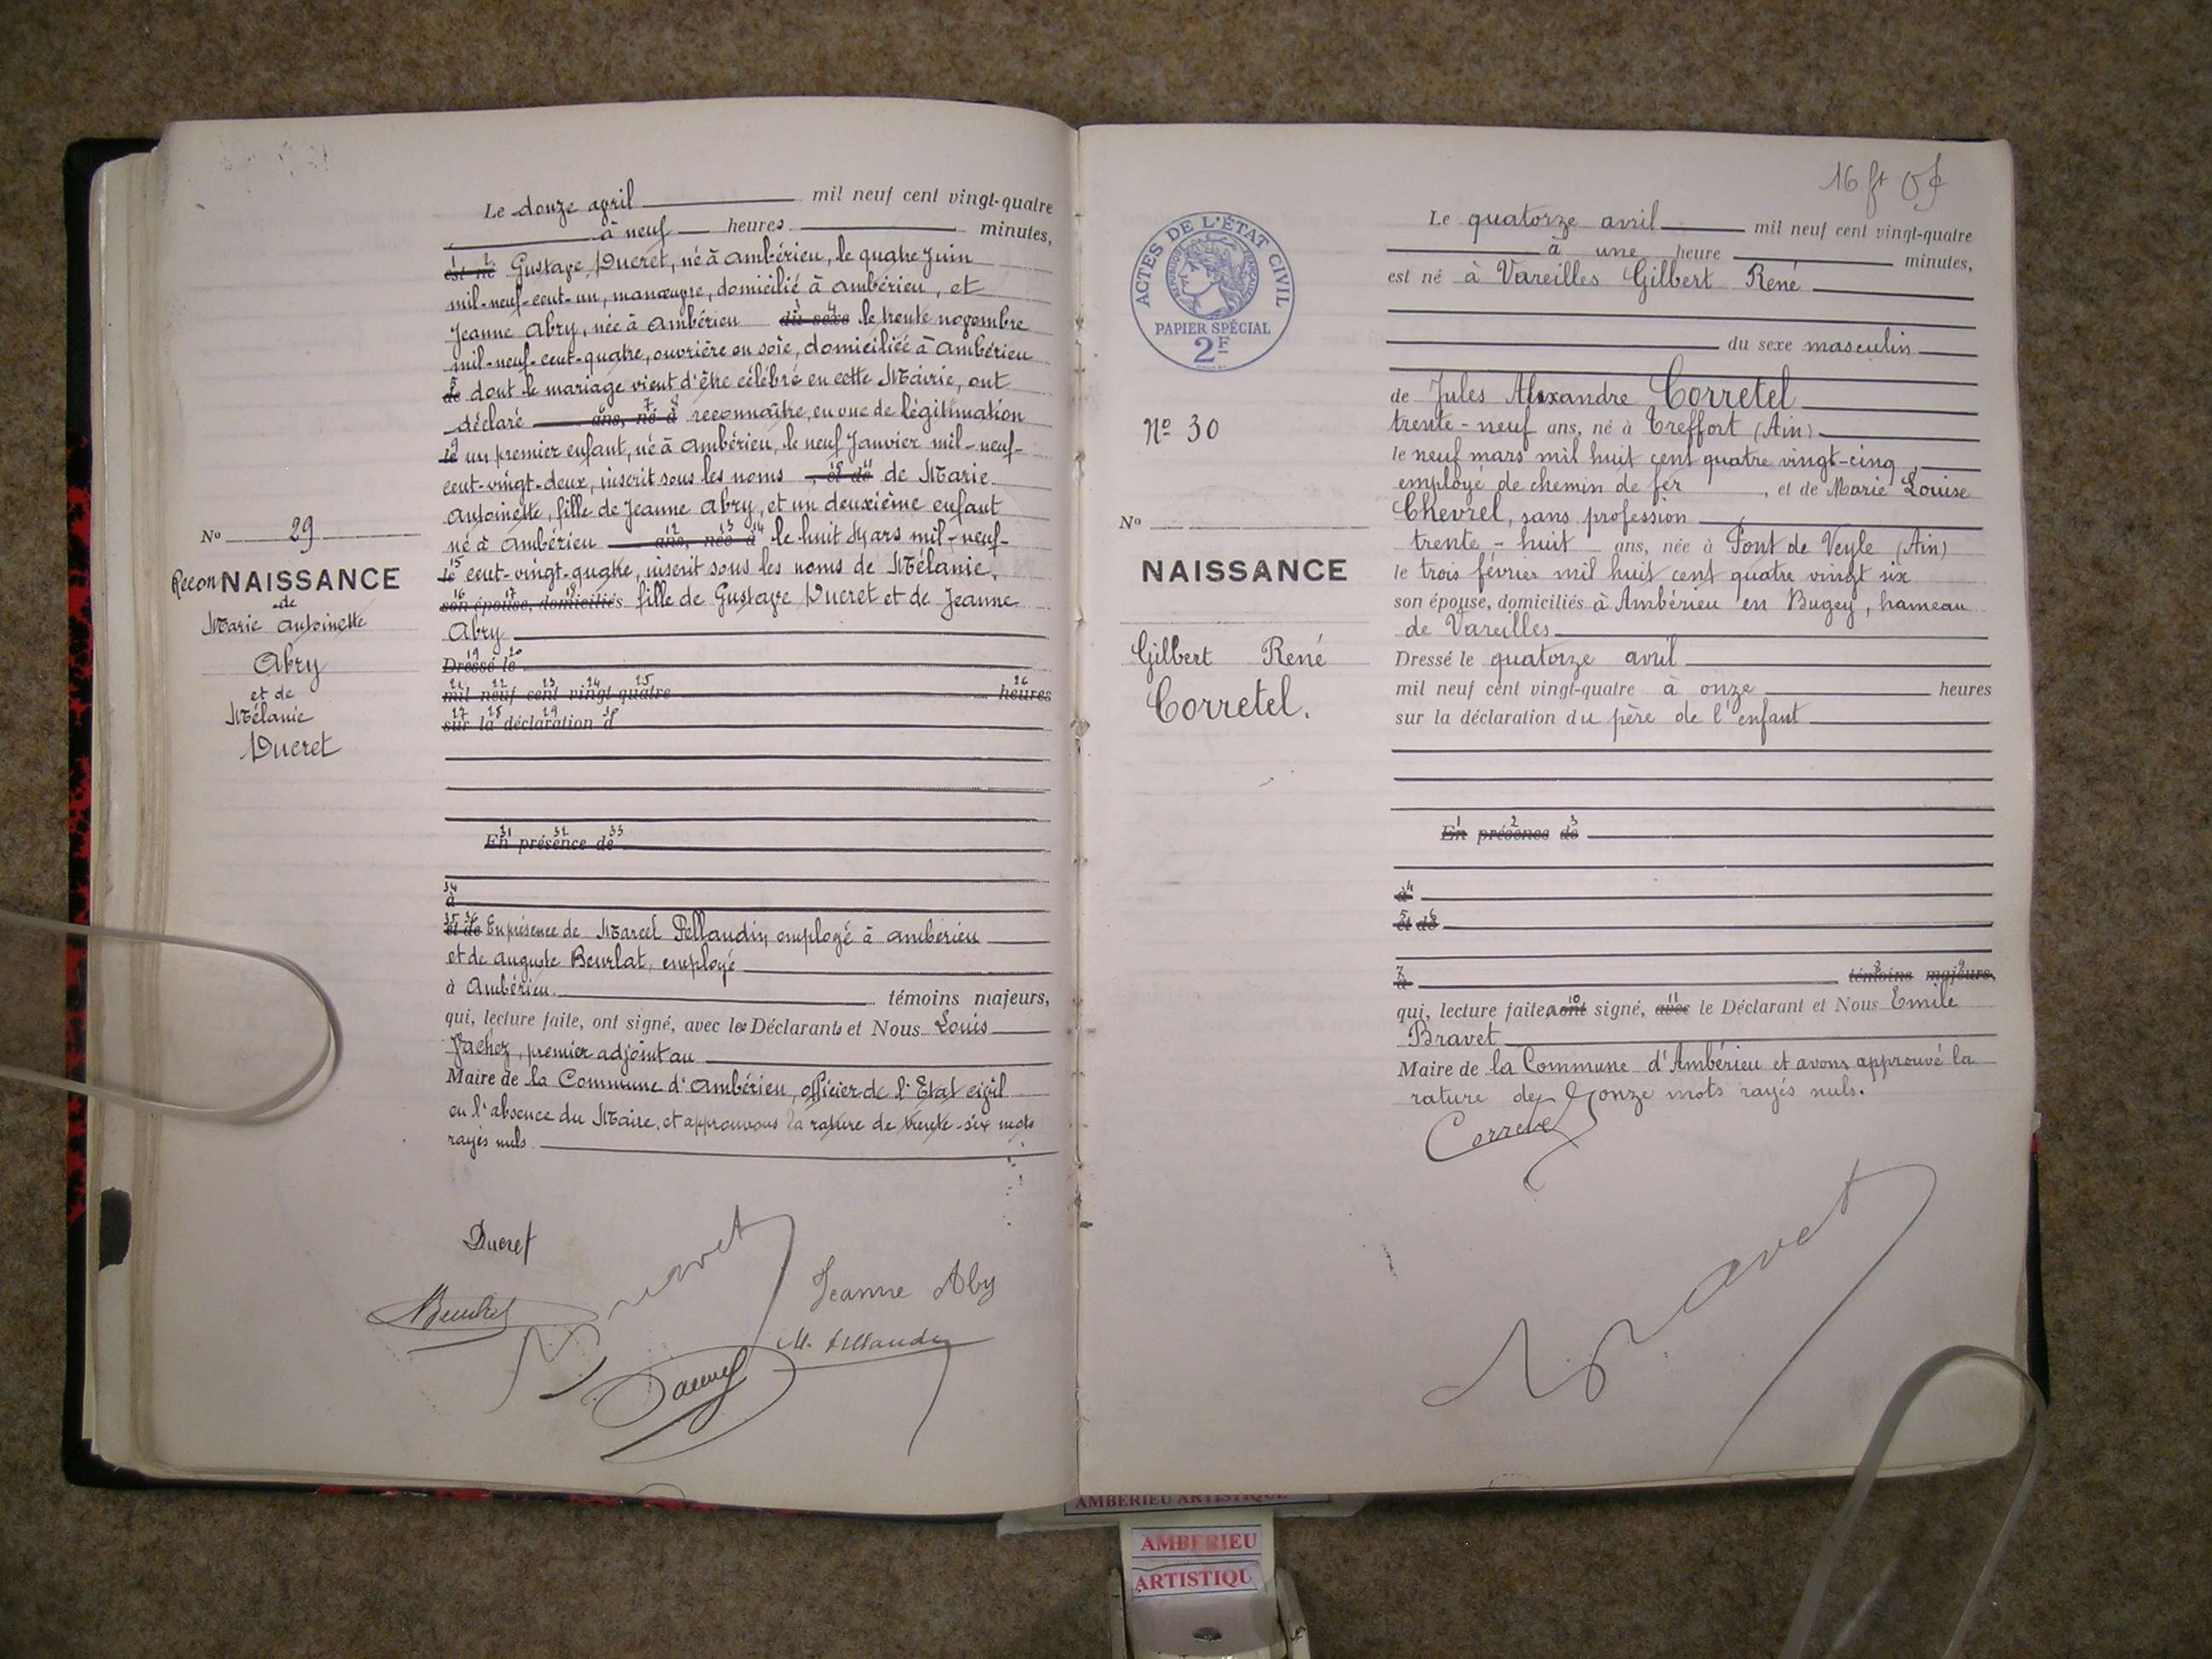 Le douze avril mil neuf cent vingt-quatre
à neuf heures minutes,
est né Gustave Ducret, né à Ambérieu, le quatre Juin
mil-neuf-cent-un, manœuvre, domicilié à Ambérieu, et
Jeanne Abry, née à Ambérieu du sexe le trente novembre
mil-neuf-cent-quatre, ouvrière en soie, domiciliée à Ambérieu
de dont le mariage vient d'être célébré en cette Mairie, ont
déclaré ans, né à reconnaître, en vue de légitimation
le un premier enfant, né à Ambérieu, le neuf Janvier mil-neuf-
cent-vingt-deux, inscrit sous les noms et de de Marie
Antoinette, fille de Jeanne Abry, et un deuxième enfant
né à Ambérieu ans, née à le huit Mars mil-neuf-
le cent-vingt-quatre, inscrit sous les noms de Mélanie,
son épouse, domiciliés fille de Gustave Ducret et de Jeanne
Abry
Dressé le
mil neuf cent vingt-quatre heures
sur la déclaration d
En présence de
à
et de En présence de Marcel Pellaudin, employé à Ambérieu
et de Auguste Beurlat, employé
à Ambérieu. témoins majeurs,
qui, lecture faite, ont signé, avec les Déclarants et Nous Louis
premier adjoint au
Maire de la Commune d'Ambérieu, officier de l'Etat civil
en l'absence du Maire, et approuvons la rature de trente-six mots
rayés nuls.
Nº 29
Recon NAISSANCE
de
Marie Antoinette
Abry
et de
Mélanie
Ducret
Ducret
Jeanne Aby
16
ACTES DE L'ÉTAT CIVIL
RÉPUBLIQUE FRANÇAISE
PAPIER SPÉCIAL
2F
Nº 30
Nº
NAISSANCE
Gilbert René
Corretel.
Le quatorze avril mil neuf cent vingt-quatre
à une heure minutes,
est né à Vareilles Gilbert René
du sexe masculin
de Jules Alexandre Corretel
trente-neuf ans, né à Treffort (Ain)
le neuf mars mil huit cent quatre vingt-cinq,
employé de chemin de fer, et de Marie Louise
Chevrel, sans profession
trente-huit ans, née à Pont de Veyle (Ain)
le trois février mil huit cent quatre vingt six
son épouse, domiciliés à Ambérieu en Bugey, hameau
de Vareilles
Dressé le quatorze avril
mil neuf cent vingt-quatre à onze heures
sur la déclaration du père de l'enfant
En présence de
à
et de
à témoins majeurs,
qui, lecture faite a ont signé, avec le Déclarant et Nous Emile
Bravet
Maire de la Commune d'Ambérieu et avons approuvé la
rature de onze mots rayés nuls.
Corretel
Bravet
AMBERIEU ARTISTIQUE
AMBERIEU
ARTISTIQU